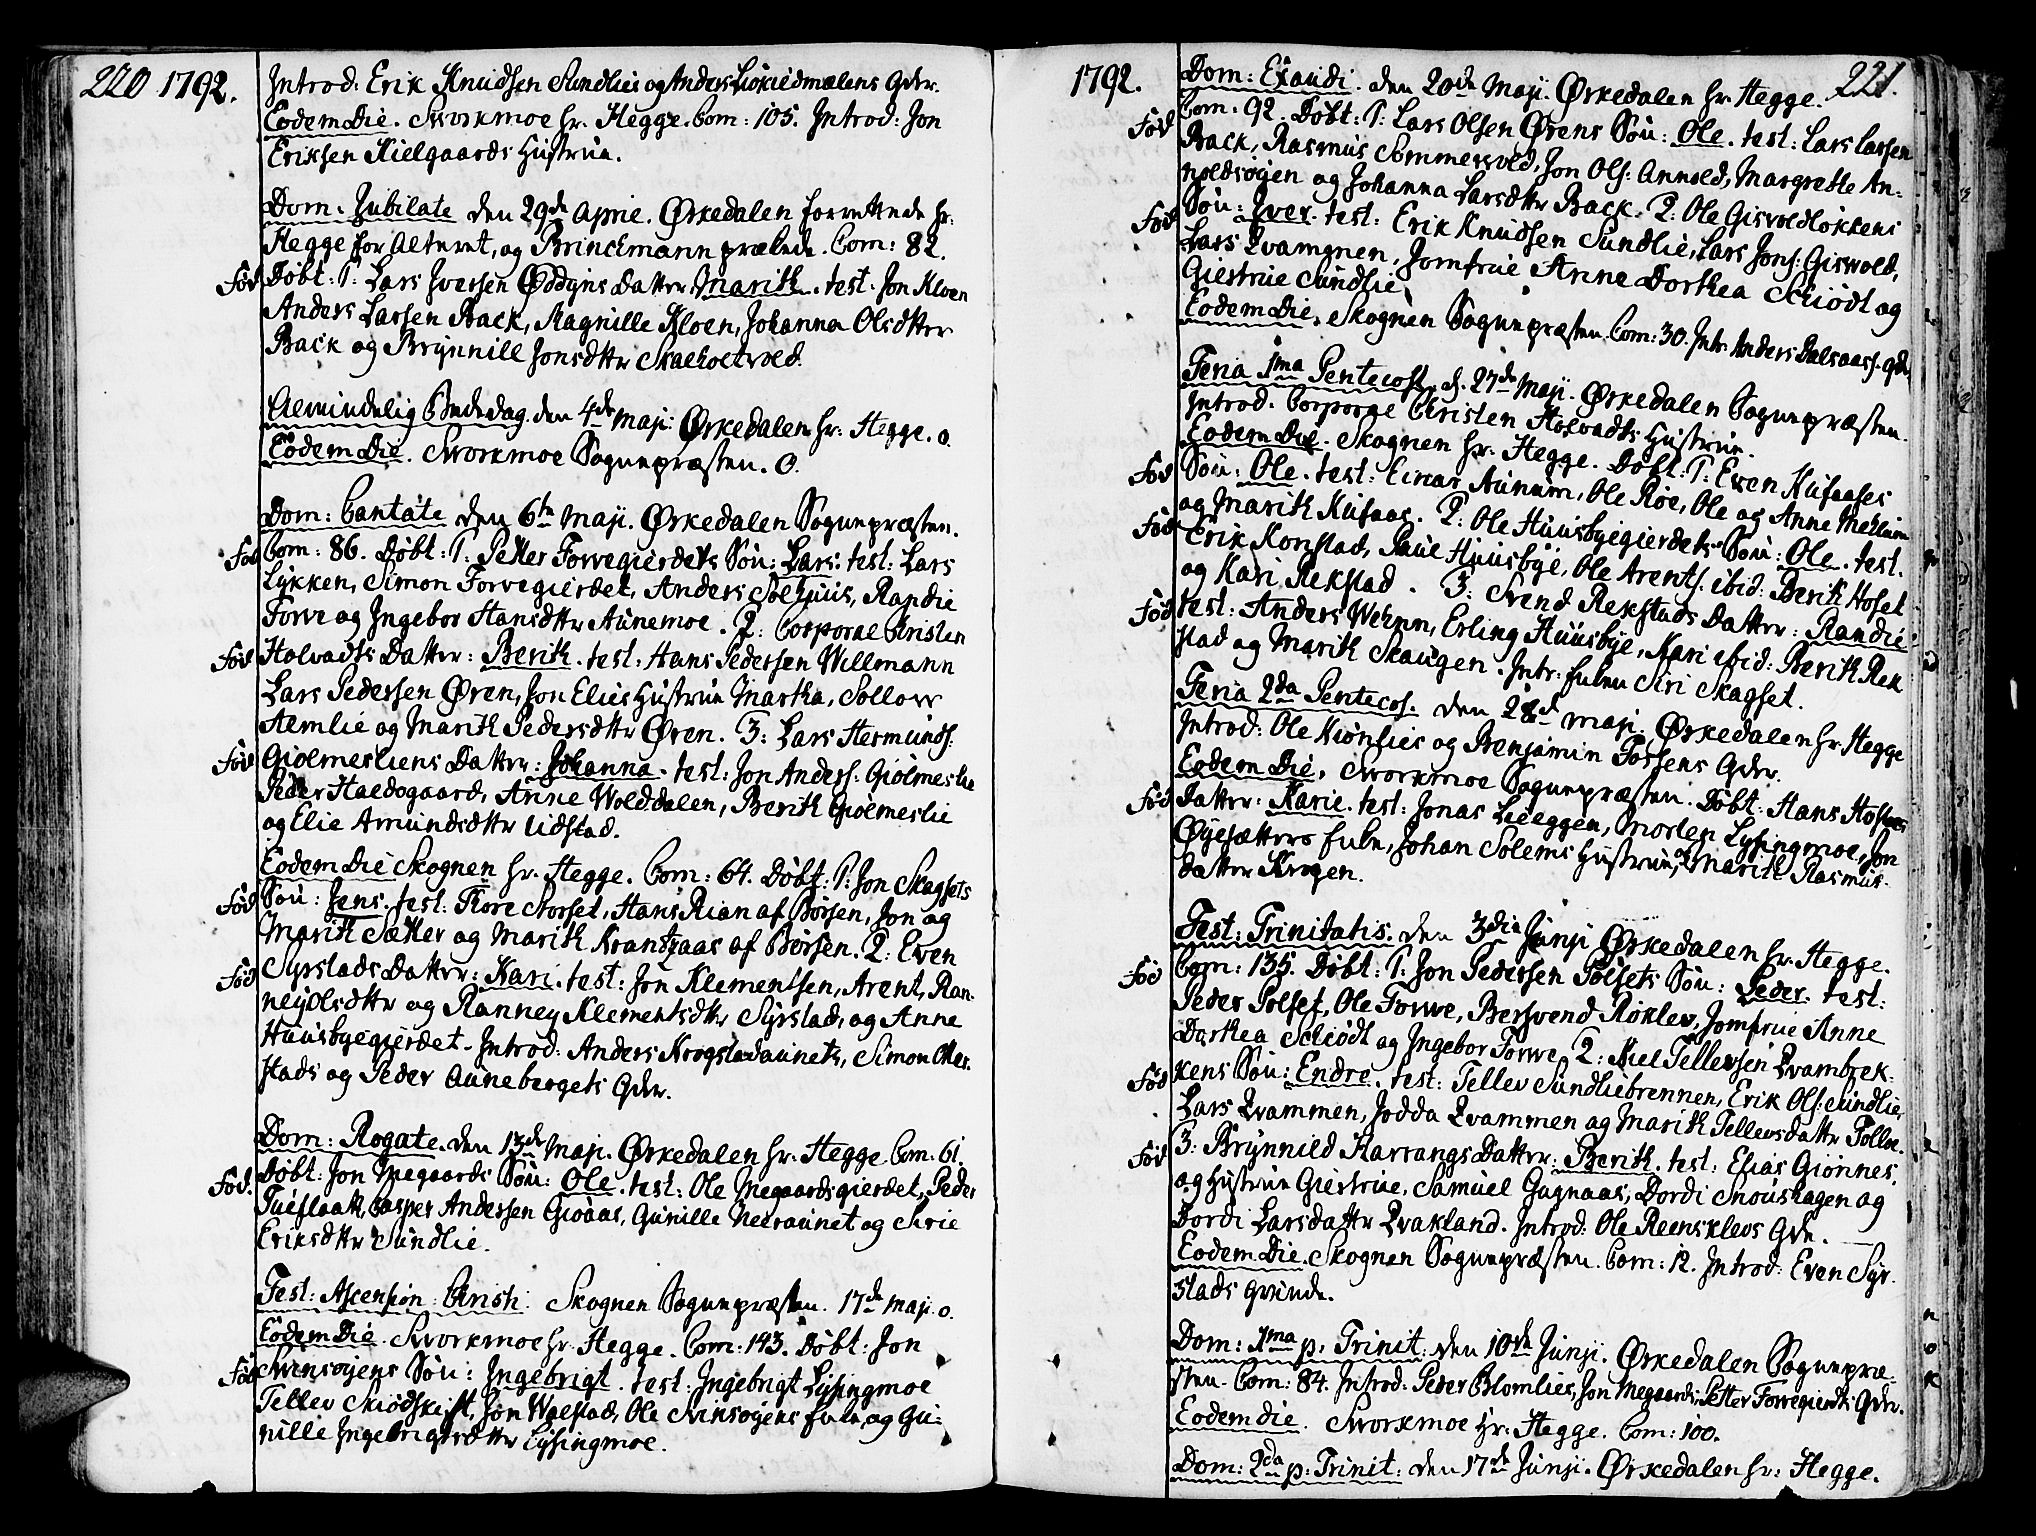 220 1792.
Introd: Erik Knudsen Sundlies og Anders Løkiedmælens Qdr.
Eodem Die. Sworkmoe hr. Hegge. Com: 105. Introd: Jon
Eriksen Kielgaards Hustrue.
Dom. Jubilate den 29de April. Ørkedalen forrettende hr.
Hegge for Alteret, og Brinckmann prækede. Com: 82.
Fød Døbt: 1: Larś Iversen Oddgins Datter: Marith. test. Jon Kloen
Anders Larsen Back, Ragnille Kloen, Johanna Olsdttr
Back og Brynnill Jonsdttr Skaelhoelwold.
Almindelig Bededag den 4de Maji: Ørkedalen hr. Hegge. 0.
Eodem Die. Sworkmoe Sognepræsten. 0.
Dom: Cantate den 6te Maji. Ørkedalen Sognepræsten.
Fød Com: 86. Døbt: 1. Petter Forwegierdets Søn: Lars: test: Lars
Lykken, Simon Forwegierdet, Anders Solhuus, Randie
Forwe og Ingebor Hansdttr Aunemoe. 2: Corporal Christen
Fød Holvadts Datter: Berith. test: Hans Pedersen Willmann
Lars Pedersen Øren, Jon Elies Hustrue Martha, Sollow
Aemlie og Marith Pedersdttr Øren. 3: Lars Hermunds:
Fød Giølmesliens Datter: Johanna. test: Jon Anders: Giølmeslie
Peder Haldogaard, Anne Wolddalen, Berith Giølmeslie
og Elie Amundsdttr Udstad.
Eodem Die Skognen hr. Hegge. Com: 64. Døbt: 1: Jon Skagsets
Fød Søn: Jens. test: Tore Norset, Hans Rian af Børsen, Jon og
Marith Sætter og Marith Krantzaas af Børsen. 2: Even
Fød Syrstads Datter: Kari. test: Jon Klementsen, Arent, Ran-
ney Olsdttr og Ranney Klementsdttr Syrstad, og Anne
Huusbyegierdet. Introd: Anders Krogstadaunets, Simon Oller-
stads og Peder Aunebergets Qdr.
Dom: Rogate. den 13de Maji. Ørkedalen hr. Hegge Com: 61.
Fød. Døbt: Jon Megaards Søn: Ole. test: Ole Megaardsgierdet, Peder
Tuefloatt, Casper Andersen Gioaas, Gunille Nerraunet og Sirie
Eriksdttr Sundlie.
Fest: Ascension: Christi. Skognen Sognepræsten. 17de Maji. 0.
Eodem Die. Sworkmoe hr. Hegge. Com: 143. Døbt: Jon
Fød Swinsøyens Søn: Ingebrigt. test: Ingebrigt Lysingmoe
Tellev Skiødskift, Jon Wolstad, Ole Swinsøyens fule, og Gu-
nille Ingebrigtsdttr Lysingmoe.
1792. 221.
Dom: Exaudi. den 20de Maji. Ørkedalen hr. Hegge.
Fød Com: 92. Døbt: 1. Lars Olsen Ørens Søn: Ole. test: Lars Larsen
Back, Rasmus Sommerswold, Jon Ols: Annold, Margrethe An-
noldsøyen og Johanna Larsdttr Back. 2: Ole Gisvoldløkkens
Fød Søn: Iver. test: Erik Knudsen Sundlie, Lars Jons: Giswold,
Lars Qvamnen, Jomfrue Anne Dorthea Schiødt og
Giertrue Sundlie.
Eodem Die, Skognen Sognepræsten. Com: 30. Intr: Anders Dalsaas: Qdr.
Feria 1ma Pentecost. d. 27de Maji. Ørkedalen Sognepræsten.
Introd. Corporal Christen Holvadts Hustrue.
Eodem Die. Skognen hr. Hegge. Døbt: 1: Even Kufaases
Fød Søn: Ole. test: Einar Aunum, Ole Røe, Ole og Anne Mehlum
og Marith Kufaas. 2: Ole Huusbyegierdets Søn: Ole. test.
Fød Erik Konstad, Paul Huusbye, Ole Arents: ibid: Berith Hofset
og Kari Rekstad. 3: Svend Rekstads Datter: Randie:
Fød test: Anders Wehnn, Erling Huusbye, Kari ibid: Berith Rek-
stad og Marith Skaugen. Intr: fulen Siri Skagset.
Feria 2da Pentecos. den 28de Maji. Ørkedalen hr. Hegge
Introd: Ole Kiønlies og Benjamin Fossens Qdr.
Eodem Die, Sworkmoe Sognepræsten. Døbt: Hans Hofnes
Fød Datter: Karie. test: Jonas Lieeggen, Morten Lysingmoe, Jon
Øyesætters fule, Johan Solems Hustrue, og Marith Rasmus-
datter Krogen.
Fest: Trinitatis. den 3die Junji Ørkedalen hr. Hegge.
Fød Com: 135. Døbt: 1. Jon Pedersen Solsets Søn: Peder. test:
Peder Solset, Ole Forwe, Berswend Røklev, Jomfrue Anne
Dorthea Schiødt og Ingebor Forwe. 2: Niel Tellevsen Qvambek-
Fød kens Søn: Endre. test: Tellev Sundliebrennen, Erik Ols: Sundlie,
Lars Qvammen, Jodda Qvammen og Marith Tellevsdattr Solloe.
Fød 3: Brynnild Karrangs Datter: Berith. test: Elias Giønnes,
og Hustrue Giertrue, Samuel Gagnaas, Dordi Snoushagen og
Dordi Larsdattr Qvakland. Introd: Ole Reenskleos Qde.
Eodem Die. Skognen Sognepræsten. Com: 12. Introd: Even Syr-
stads Qvinde.
Dom: 1ma p. Trinit: den 10de Junji. Ørkedalen Sognepræ-
sten. Com: 84. Introd: Peder Blomlies, Jon Megaards, Petter Forwegierdts Qdr.
Eodem die. Sworkmoe Hr: Hegge. Com: 100.
Dom: 2da p: Trinit: den 17de Junji. Ørkedalen hr: Hegge.